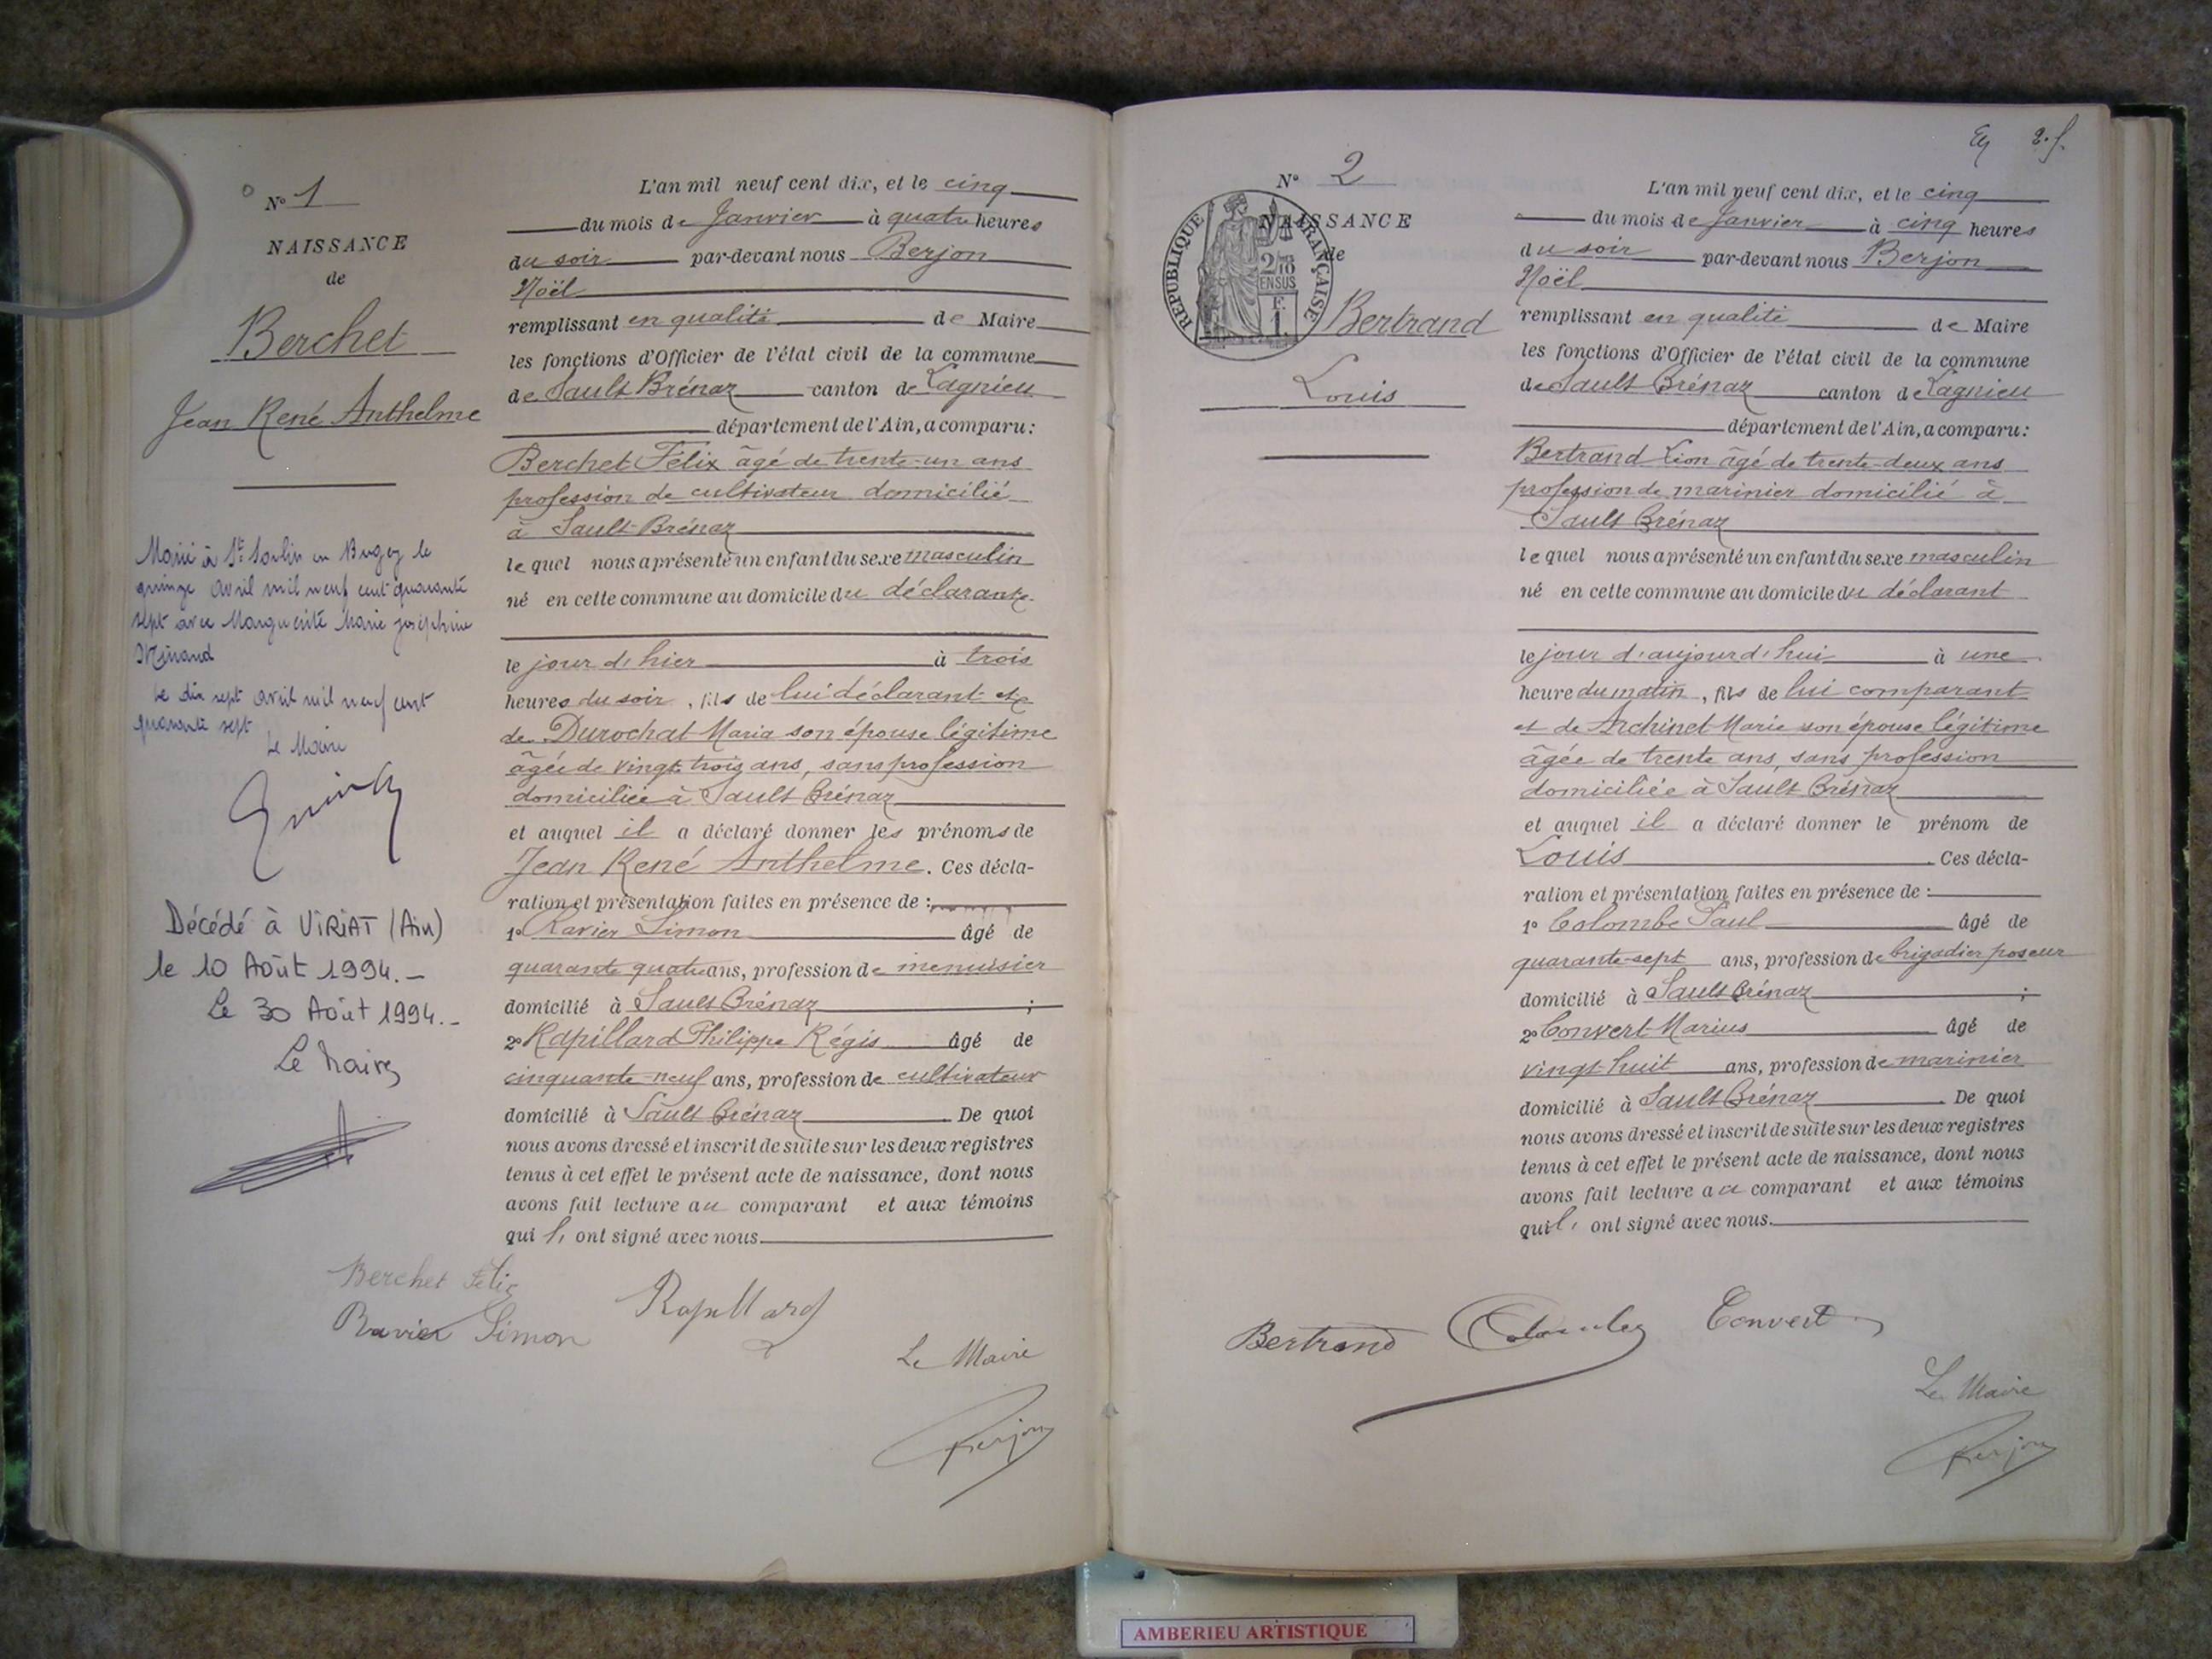 N° 1
NAISSANCE
de
Berchet
Jean René Anthelme
Marié à St Sorlin en Bugey le
quinze avril mil neuf cent quarante
sept avec Marguerite Marie Joséphine
Le dix sept avril mil neuf cent
quarante sept
Le Maire
Décédé à VIRIAT (Ain)
le 10 Août 1994.-
Le 30 Août 1994.-
Le Maire
L'an mil neuf cent dix, et le cinq
du mois de Janvier à quatre heures
du soir par-devant nous Berjon
Noël
remplissant en qualité de Maire
les fonctions d'Officier de l'état civil de la commune
de Sault Brénaz canton de Lagnieu
département de l'Ain, a comparu:
Berchet Félix âgé de trente-un ans
profession de cultivateur domicilié
à Sault-Brénaz
lequel nous a présenté un enfant du sexe masculin
né en cette commune au domicile du déclarant
le jour d'hier à trois
heures du soir, fils de lui déclarant et
de Durochat Maria son épouse légitime
âgée de vingt trois ans, sans profession
domiciliée à Sault Brénaz
et auquel il a déclaré donner les prénoms de
Jean René Anthelme. Ces décla-
ration et présentation faites en présence de :
1° Ravier Simon âgé de
quarante quatre ans, profession de menuisier
domicilié à Sault Brénaz ;
2° Rapillard Philippe Régis âgé de
cinquante-neuf ans, profession de cultivateur
domicilié à Sault Brénaz. De quoi
nous avons dressé et inscrit de suite sur les deux registres
tenus à cet effet le présent acte de naissance, dont nous
avons fait lecture au comparant et aux témoins
qui l' ont signé avec nous.
Berchet Félix
Ravier Simon
Rapillard
Le Maire
Berjon
2.f.
N° 2
NAISSANCE
de
REPUBLIQUE FRANÇAISE
2/10
EN SUS
F.
1.
Bertrand
Louis
L'an mil neuf cent dix, et le cinq
du mois de Janvier à cinq heures
du soir par-devant nous Berjon
Noël
remplissant en qualité de Maire
les fonctions d'Officier de l'état civil de la commune
de Sault Brénaz canton de Lagnieu
département de l'Ain, a comparu:
Bertrand Léon âgé de trente-deux ans
profession de marinier domicilié à
Sault Brénaz
lequel nous a présenté un enfant du sexe masculin
né en cette commune au domicile du déclarant
le jour d'aujourd'hui à une
heure du matin, fils de lui comparant
et de Archinet Marie son épouse légitime
âgée de trente ans, sans profession
domiciliée à Sault Brénaz
et auquel il a déclaré donner le prénom de
Louis. Ces décla-
ration et présentation faites en présence de :
1° Colombe Paul âgé de
quarante-sept ans, profession de brigadier poseur
domicilié à Sault Brénaz ;
2° Convert Marius âgé de
vingt-huit ans, profession de marinier
domicilié à Sault Brénaz. De quoi
nous avons dressé et inscrit de suite sur les deux registres
tenus à cet effet le présent acte de naissance, dont nous
avons fait lecture au comparant et aux témoins
qui l' ont signé avec nous.
Bertrand Colombe Convert
Le Maire
Berjon
AMBERIEU ARTISTIQUE